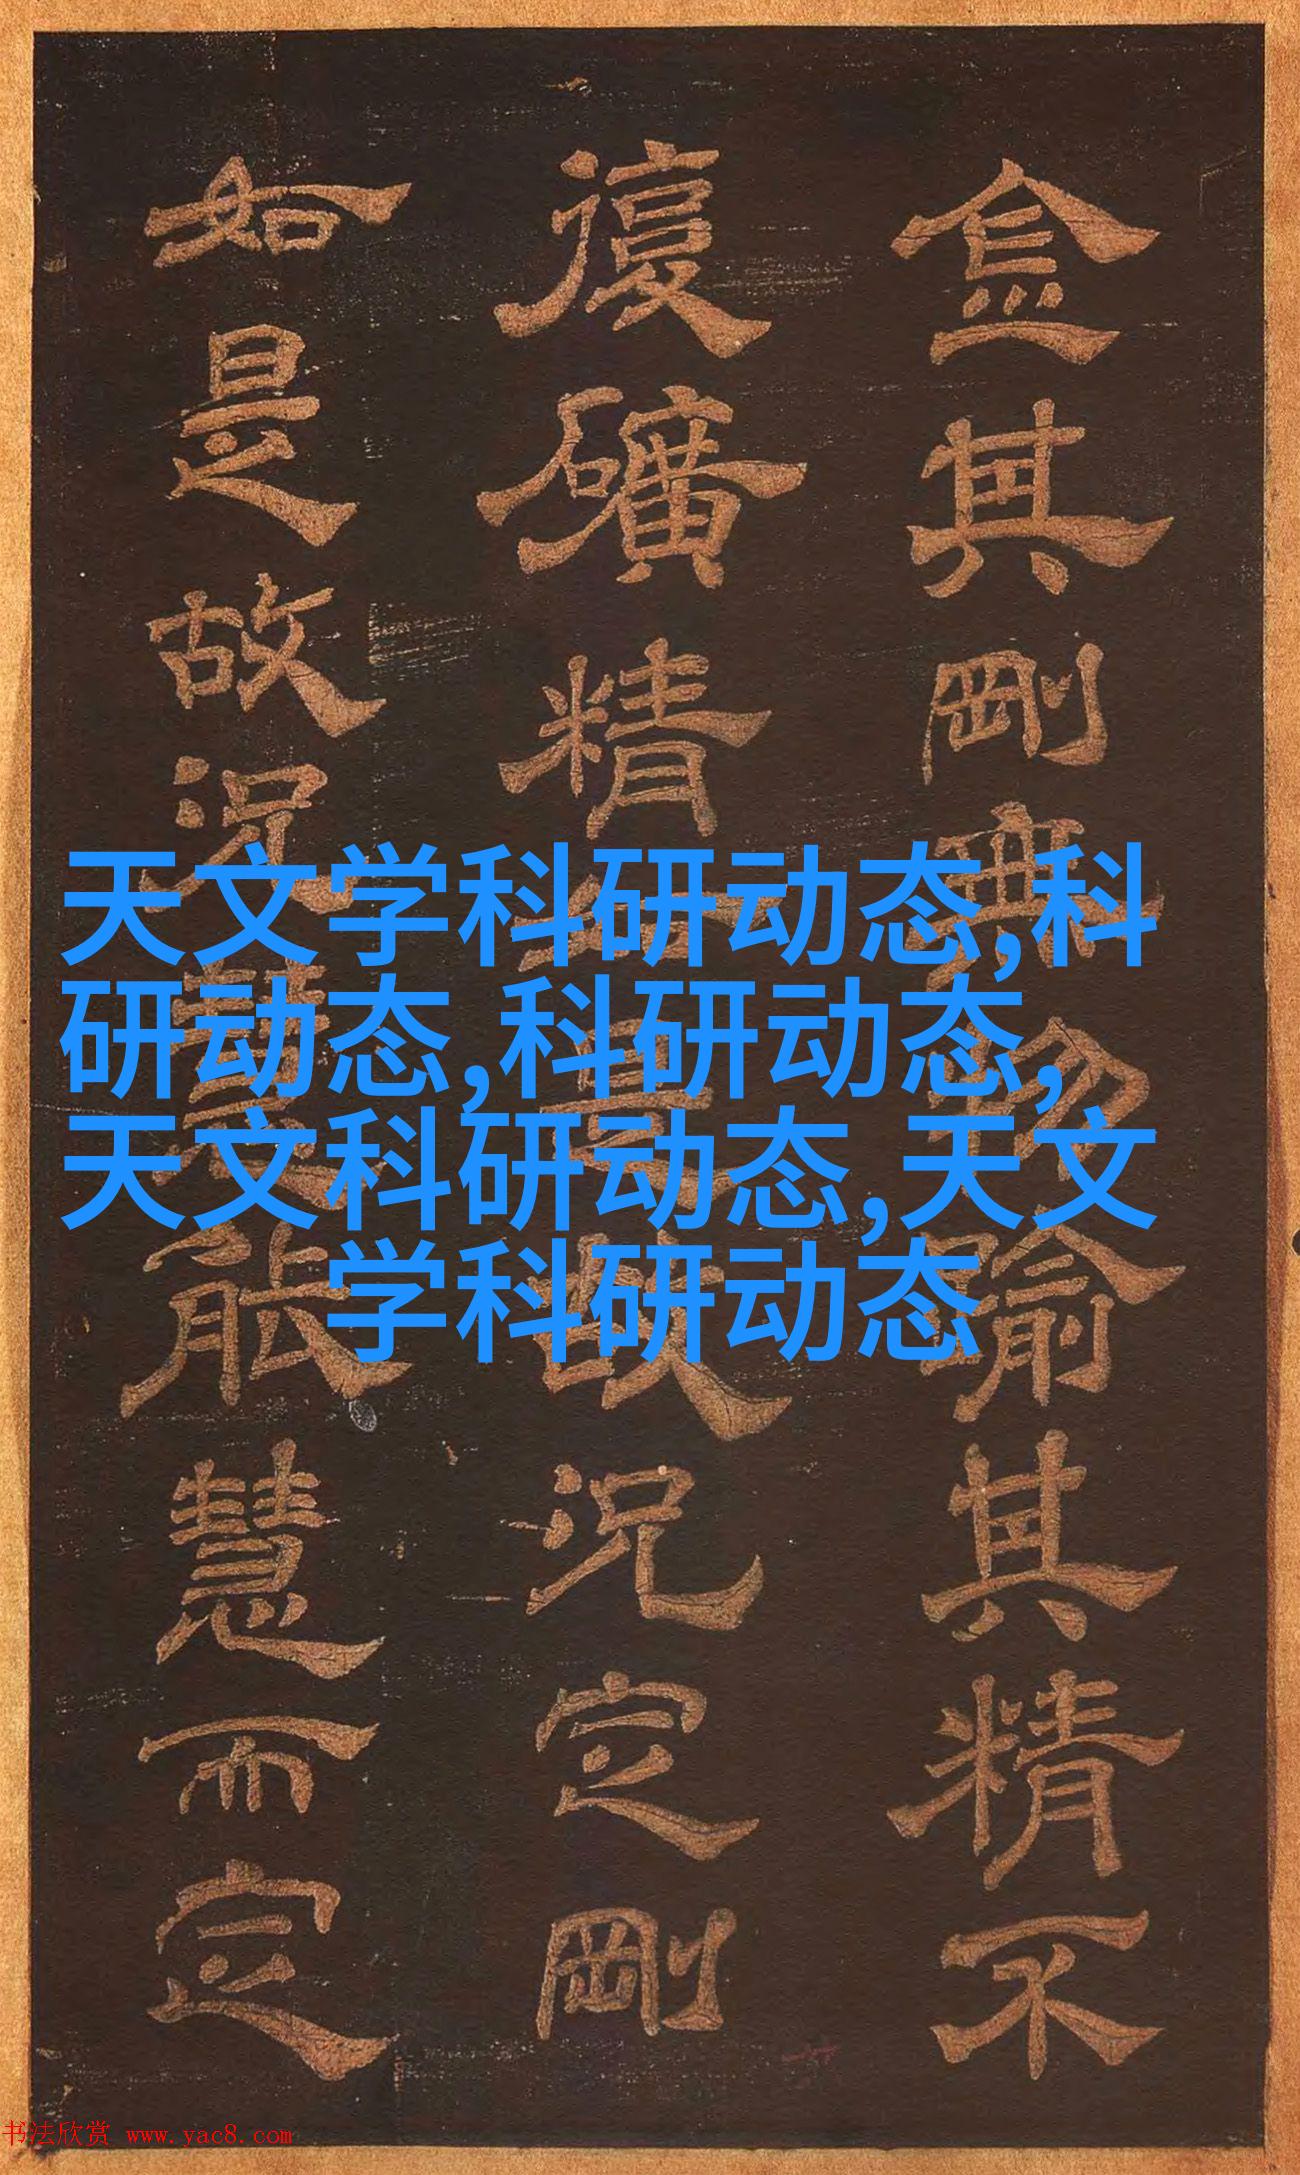 金其剛無物喻其精不
復礦精故況定剛
如是故況慧能慧而定
天文学科研动态,科
研动态,科研动态,
天文科研动态,天文
学科研动态
书法欣赏 www.yac8.com